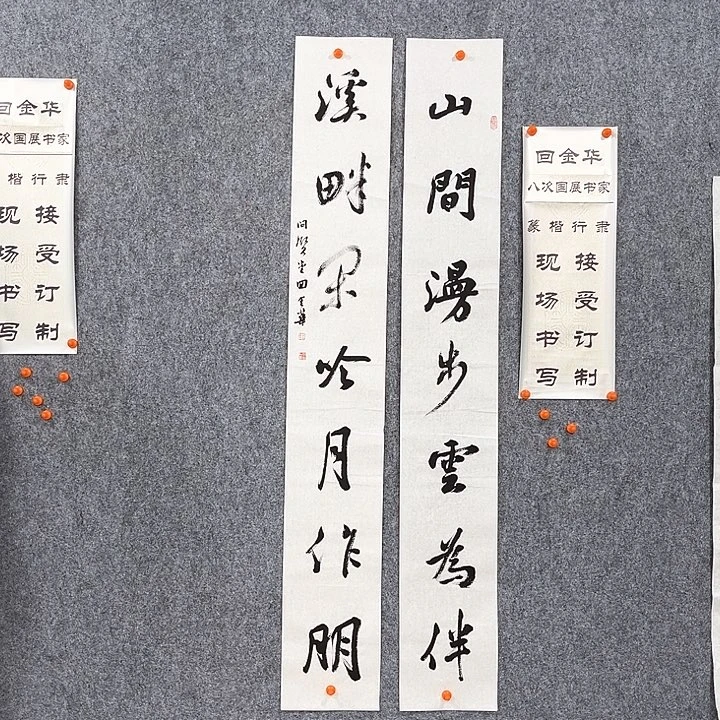 山間漫步雲為伴
溪畔閑吟月作朋
问賢堂回金華
回金华
八次国展书家
篆楷行隶
现场书写
接受订制
回金华
次国展书家
楷行隶
现场书写
接受订制